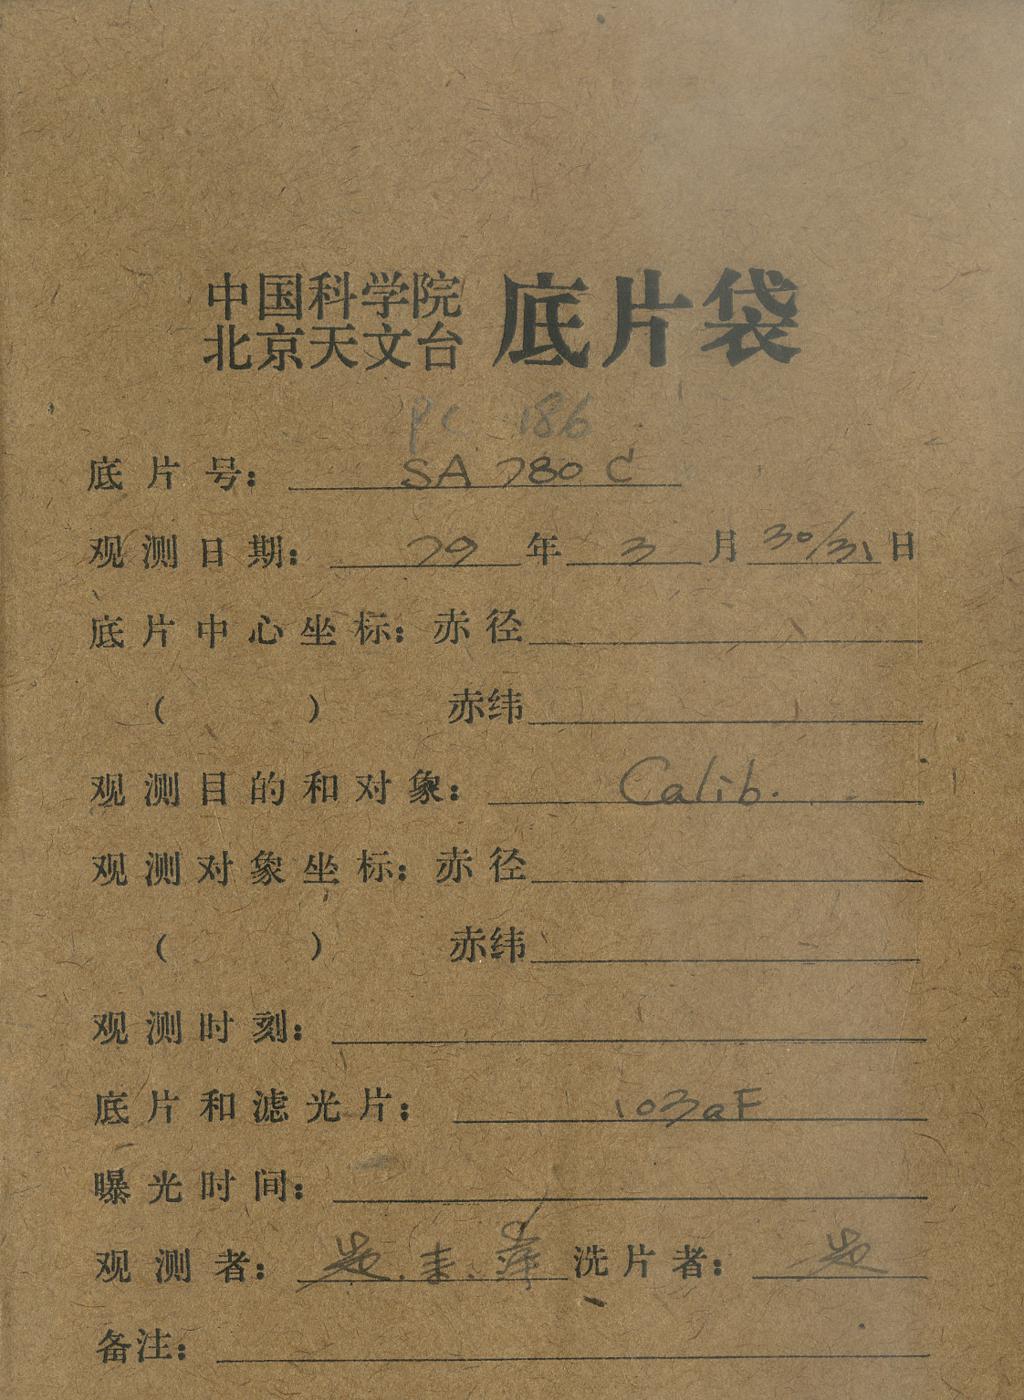 中国科学院
北京天文台 底片袋
PC 186
底片号: SA 780 C
观测日期: 79 年 3 月 30/31 日
底片中心坐标: 赤径
( ) 赤纬
观测目的和对象: Calib.
观测对象坐标: 赤径
( ) 赤纬
观测时刻:
底片和滤光片: 103aF
曝光时间:
观测者: 洗片者:
备注: